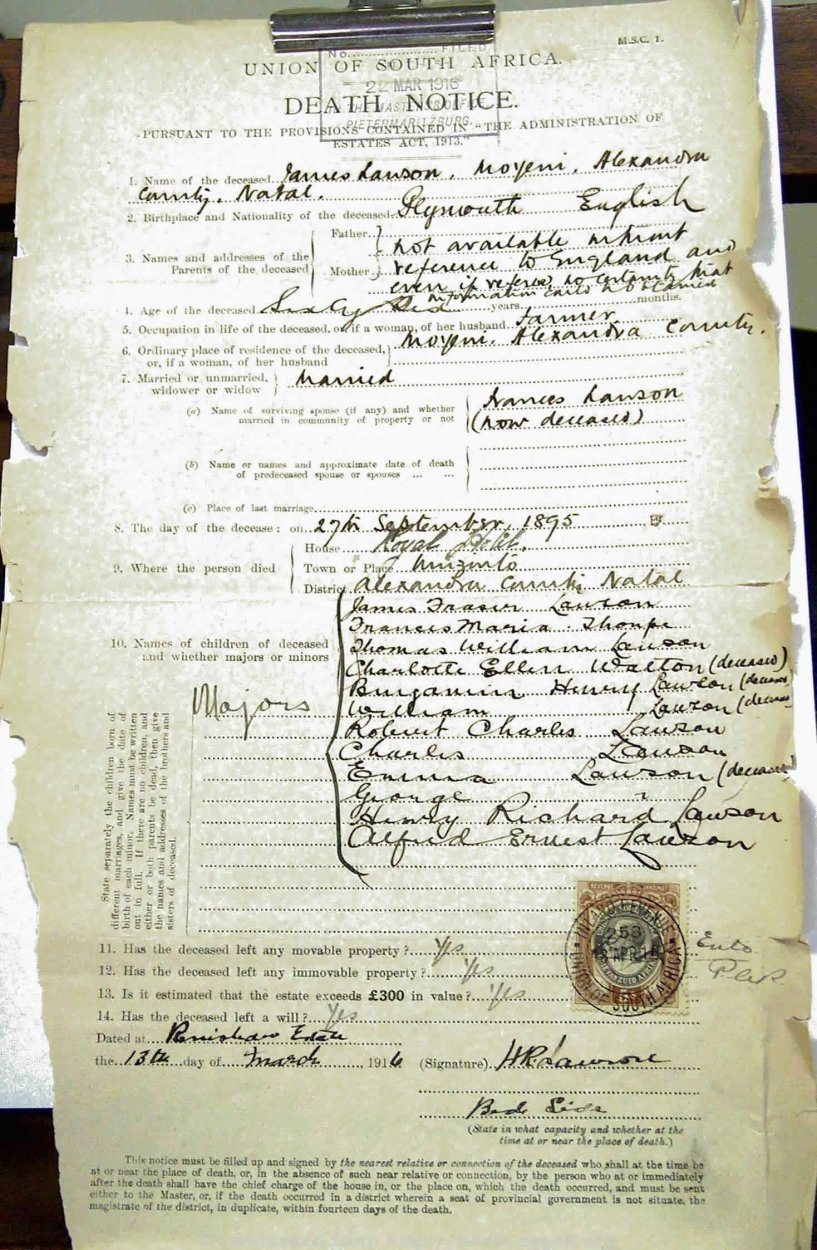 M.S.C. 1.
No. FILED
UNION OF SOUTH AFRICA.
22 MAR 1916
DEATH NOTICE.
THE MASTER'S OFFICE
PIETERMARITZBURG.
PURSUANT TO THE PROVISIONS CONTAINED IN "THE ADMINISTRATION OF
ESTATES ACT, 1913."
1. Name of the deceased James Lawson, Moyeni, Alexandra
County, Natal.
2. Birthplace and Nationality of the deceased Plymouth English
3. Names and addresses of the Parents of the deceased
Father. Mother.
not available without
reference to England and
even if referred no certainty that
information could be obtained
4. Age of the deceased Sixty Six years months.
5. Occupation in life of the deceased, or if a woman, of her husband Farmer
6. Ordinary place of residence of the deceased, Moyeni, Alexandra County.
or, if a woman, of her husband
7. Married or unmarried, Married
widower or widow
(a) Name of surviving spouse (if any) and whether Frances Lawson
married in community of property or not (now deceased)
(b) Name or names and approximate date of death
of predeceased spouse or spouses ... ...
(c) Place of last marriage
8. The day of the decease: on 27th September, 1895
House Royal Hotel.
9. Where the person died Town or Place Umzinto
District Alexandra County Natal
James Fraser Lawson
Francis Maria Thorpe
10. Names of children of deceased Thomas William Lawson
and whether majors or minors Charlotte Ellen Walton (deceased)
Benjamin Henry Lawson (deceased
Majors William Lawson (deceas
Robert Charles Lawson
Charles Lawson
Emma Lawson (deceased
George "
Henry Richard Lawson
Alfred Ernest Lawson
State separately the children born of
different marriages, and give the date of
birth of each minor. Names must be written
out in full. If there are no children, and
either or both parents be dead, then give
the names and addresses of the brothers and
sisters of deceased.
REVENUE INKOMST
INLAND REVENUE
258
UNION OF SOUTH AFRICA
11. Has the deceased left any movable property? Yes
12. Has the deceased left any immovable property? Yes
13. Is it estimated that the estate exceeds £300 in value? Yes
14. Has the deceased left a will? Yes
Dated at Renishaw Estate
the 13th day of March, 1916 (Signature) HRLawson
(State in what capacity and whether at the
time at or near the place of death.)
This notice must be filled up and signed by the nearest relative or connection of the deceased who shall at the time be
at or near the place of death, or, in the absence of such near relative or connection, by the person who at or immediately
after the death shall have the chief charge of the house in, or the place on, which the death occurred, and must be sent
either to the Master, or, if the death occurred in a district wherein a seat of provincial government is not situate, the
magistrate of the district, in duplicate, within fourteen days of the death.